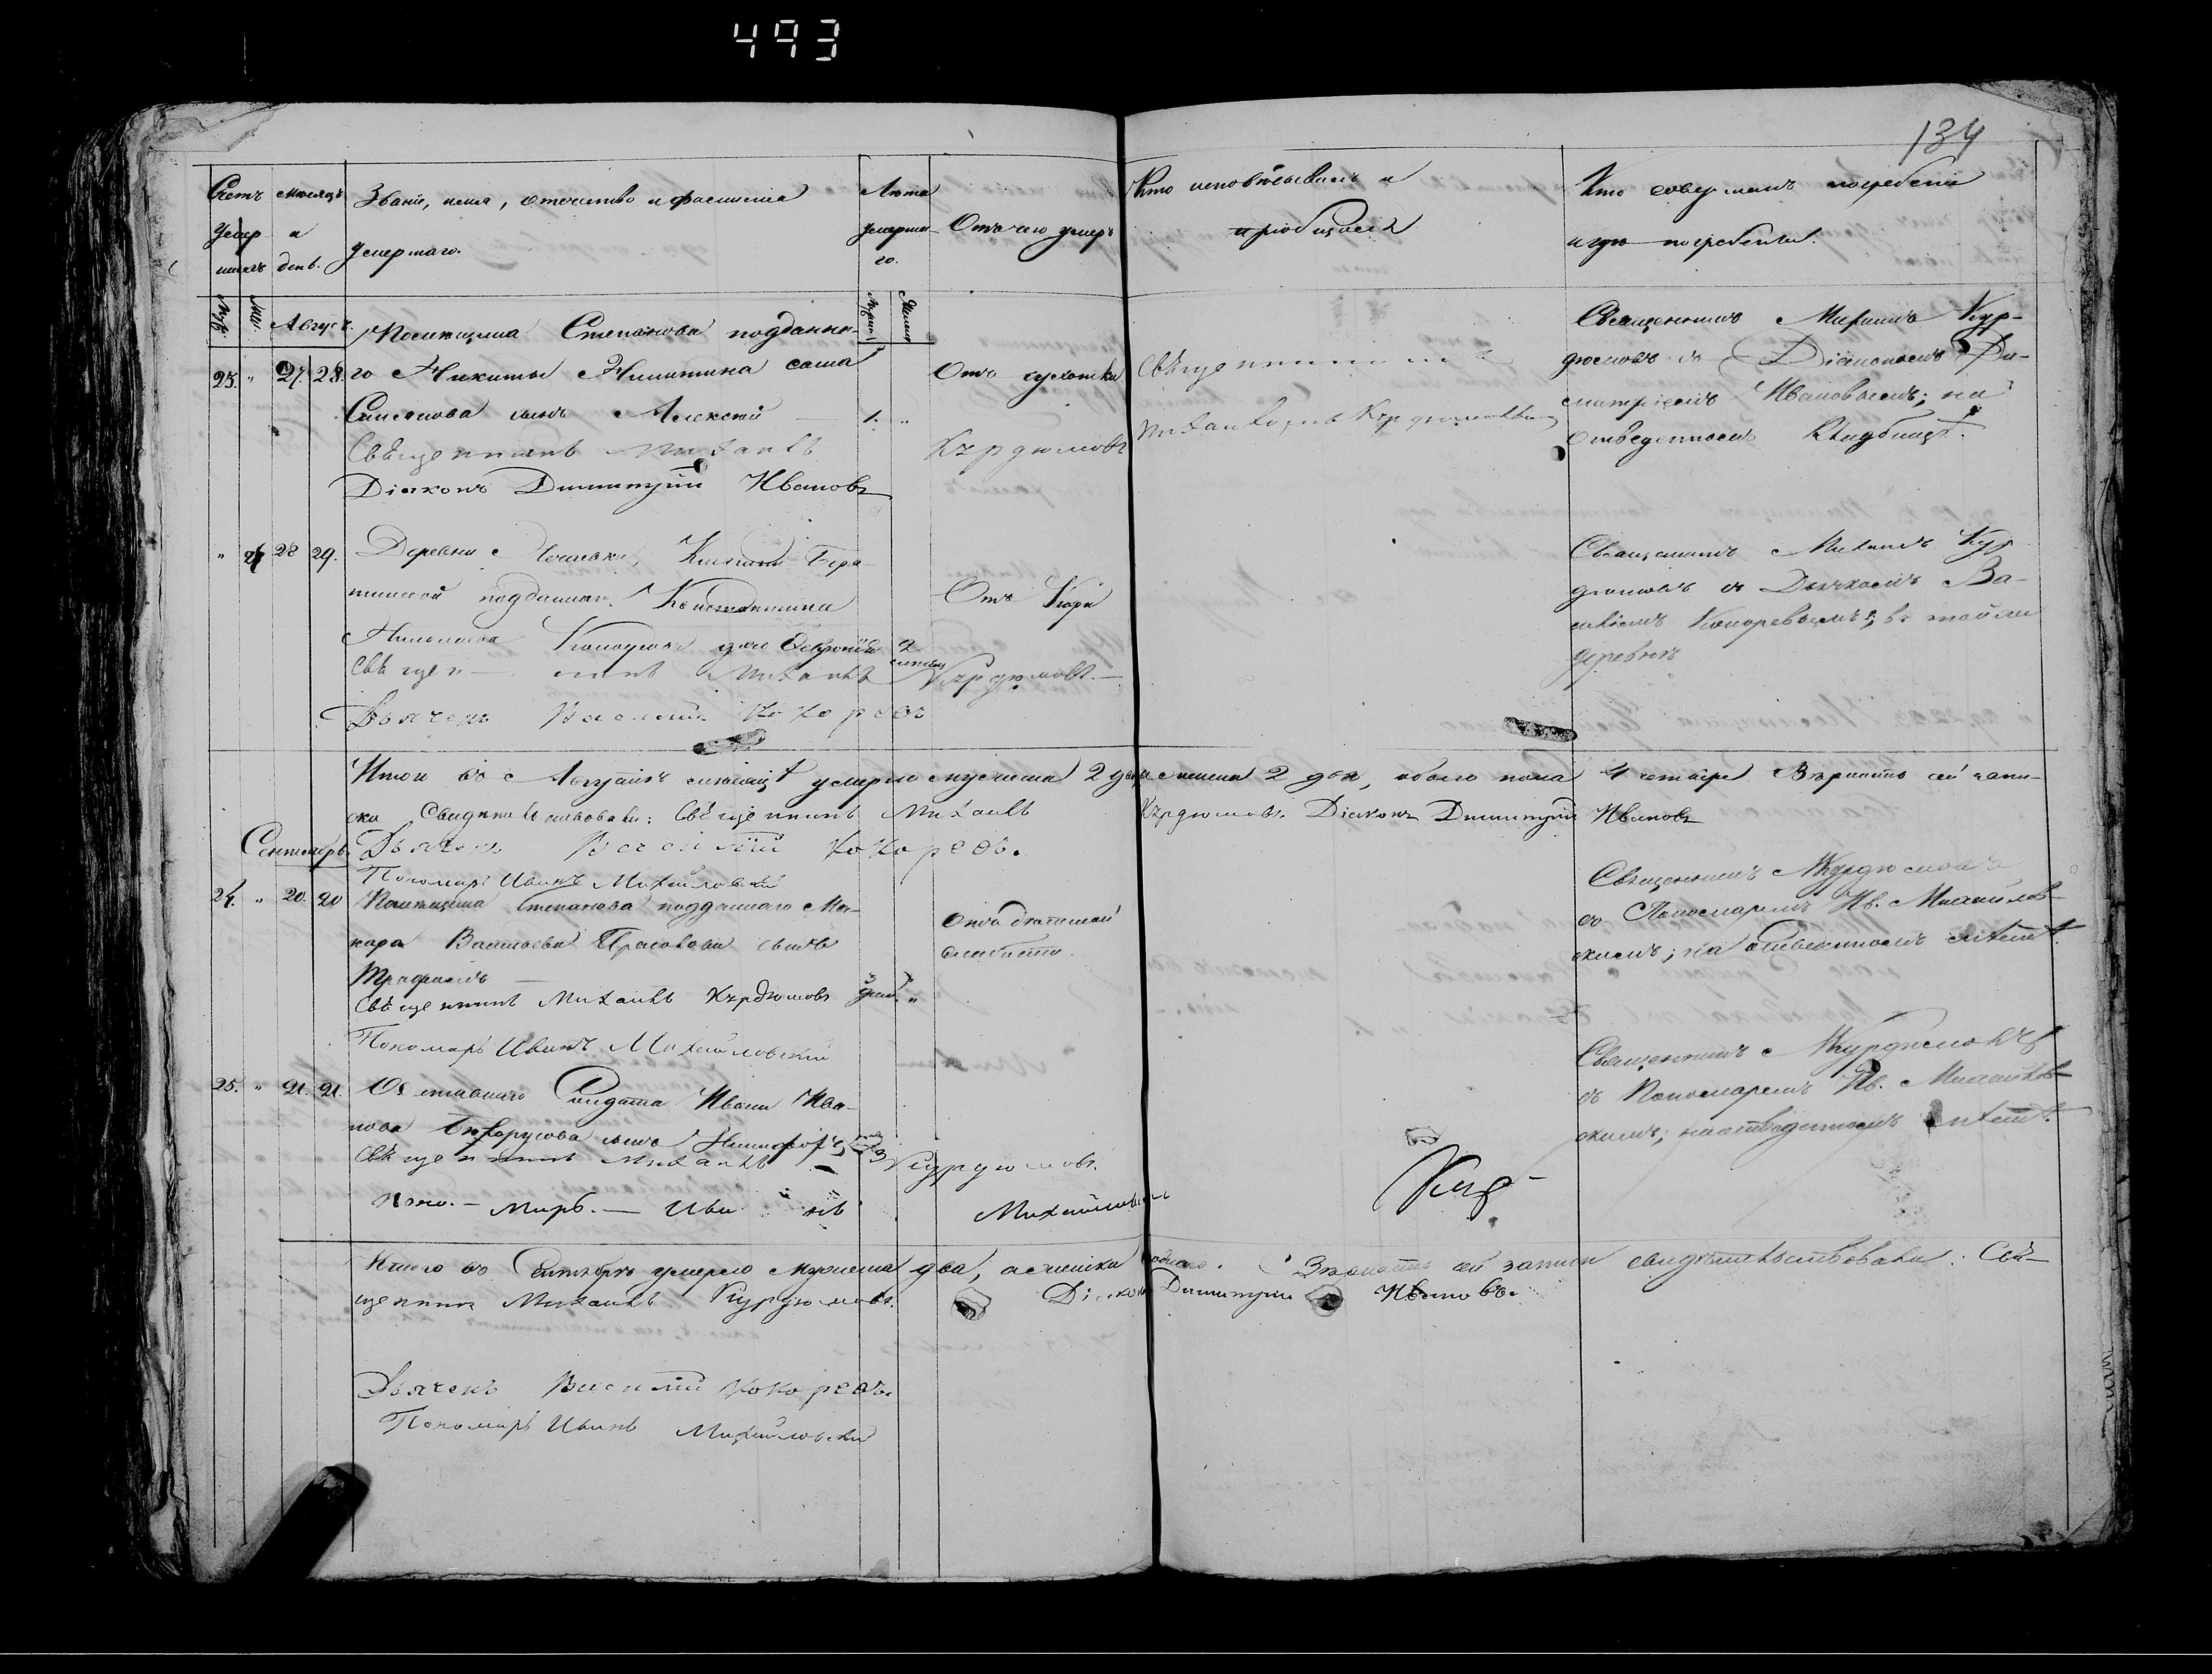 493
134
Счетъ умершихъ
Мѣсяцъ и день.
Званіе, имя, отчество и фамилія умершаго.
Лѣта умершаго.
Отъ чего умеръ
Кто исповѣдывалъ и пріобщалъ
Кто совершалъ погребеніе и гдѣ погребены.
Муж.
Жен.
Август.
Помѣщика Степанова подданна-
23. " 27. 28. го Никиты Никитина сына
сынъ Алексѣй 1. "
Священникъ Михаилъ Курдюмовъ
Діаконъ Димитрій Ивановъ
Священникъ
Михаилъ Курдюмовъ
Священникъ Михаилъ Кур-
дюмовъ съ Діакономъ Ди-
митріемъ Ивановымъ; на
отведенномъ кладбищѣ.
" 28 29. Деревни
подданнаго Константина
Николаева дочь 2
Отъ Кори
Священникъ Михаилъ Курдюмовъ.
Дьячекъ Василій Кокоревъ
Священникъ Михаилъ Кур
дюмовъ съ Дьячкомъ Ва-
силіемъ Кокоревымъ; въ той же
деревнѣ
Итого въ Августѣ мѣсяцѣ умерло мужеска 2 два женска 2 два, обоего пола 4 четыре Вѣрность сей запи-
си Свидѣтельствовали: Священникъ Михаилъ Курдюмовъ. Діаконъ Димитрій Ивановъ
Сентябрь. Дьячекъ Василій Кокоревъ.
Пономарь Иванъ Михайловскій
24. " 20. 20 Помѣщика Степанова подданнаго Ма-
кара Васильева сынъ
Трофимъ
Отъ
слабости.
Священникъ Михаилъ Курдюмовъ
Пономарь Иванъ Михайловскій
Священникъ М Курдюмовъ
съ Пономаремъ Ив. Михайлов-
скимъ; на отведенномъ мѣстѣ.
25. " 21. 21. Отставнаго Солдата Ивана Ива-
нова сынъ Никифоръ 3
Священникъ Михаилъ Курдюмовъ.
Поно.- марь.- Иванъ Михайловскій
Священникъ М Курдюмовъ
съ Пономаремъ Ив. Михайлов-
скимъ; на отведенномъ мѣстѣ.
Кур-
Итого въ Сентябрѣ умерло мужеска два, а женска . Вѣрность сей записи свидѣтельствовали: Свя-
щенникъ Михаилъ Курдюмовъ. Діаконъ Димитрій Ивановъ.
Дьячекъ Василій Кокоревъ.
Пономарь Иванъ Михайловскій